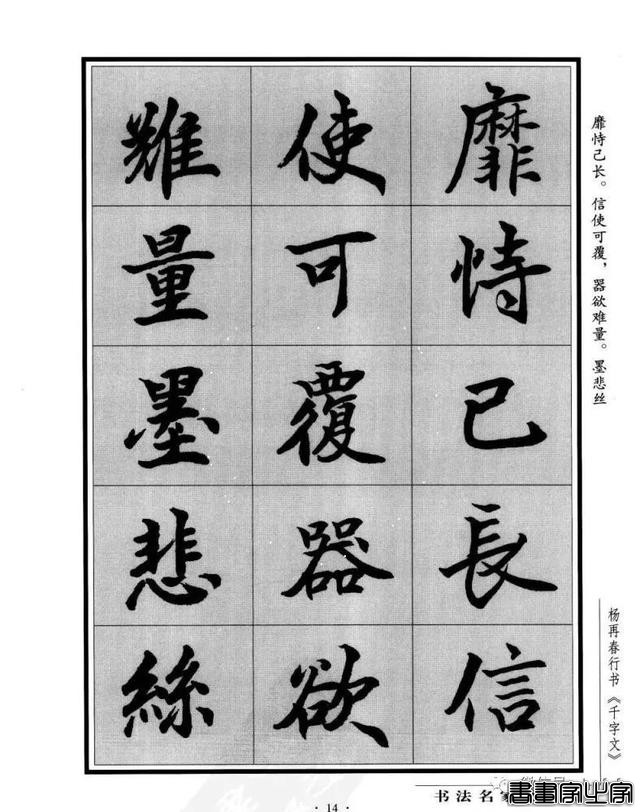 靡恃己長信
使可覆器欲
難量墨悲絲
靡恃己长。信使可覆，器欲难量。墨悲丝
杨再春行书《千字文》
·14·
书法名家
書畫家之家